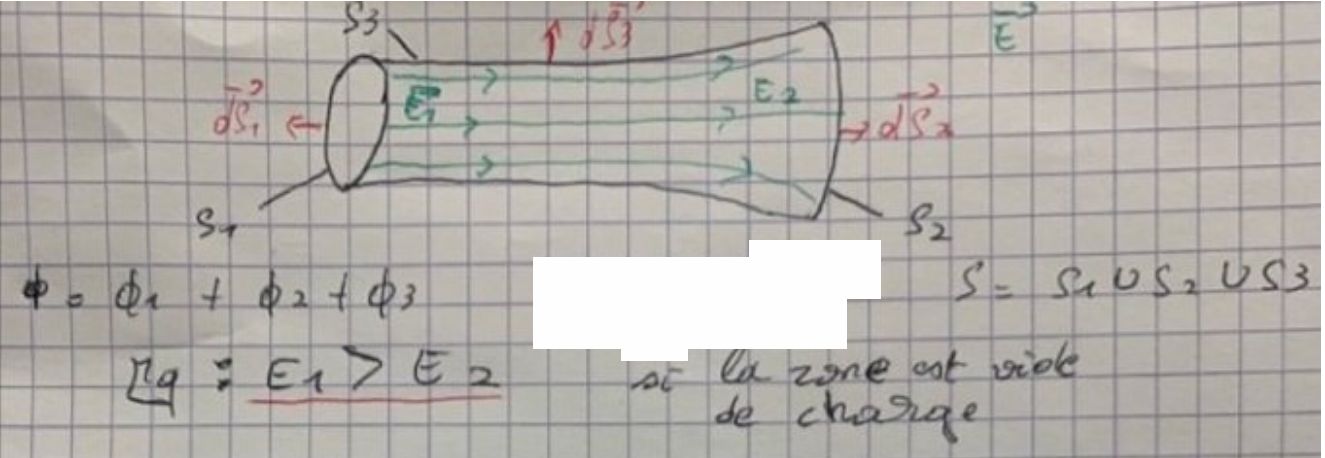 S3
dS3
E
dS1
E1
E2
dS2
S1
S2
Φ = Φ1 + Φ2 + Φ3
S = S1 U S2 U S3
Rq : E1 > E2 si la zone est vide
de charge